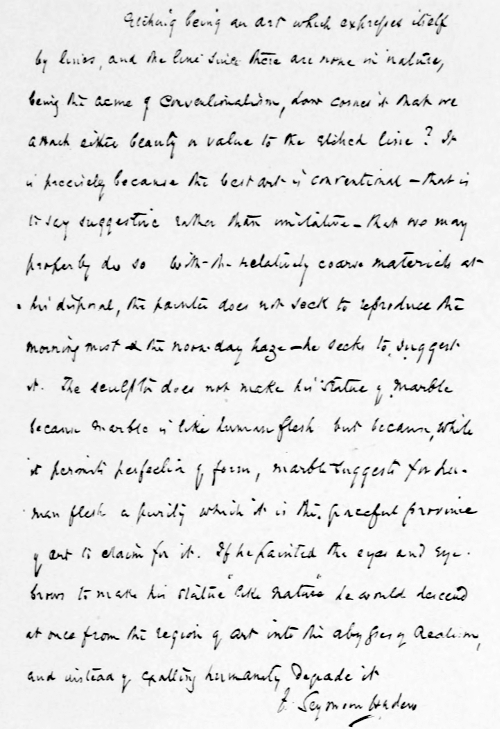 Etching being an art which expresses itself
by lines, and the line since there are none in nature,
being the acme of conventionalism, how comes it that we
attach either beauty or value to the etched line? It
is precisely because the best art is conventional – that is
to say suggestive rather than imitative – that we may
properly do so With the relatively coarse materials at
his disposal, the painter does not seek to reproduce the
morning mist & the noon-day haze – he seeks to suggest
it. The sculptor does not make his statue of marble
because marble is like human flesh but because, while
it permits perfection of form, marble suggests for hu-
man flesh a purity which it is the graceful province
of art to claim for it. If he painted the eyes and eye-
brows to make his statue "like nature" he would descend
at once from the region of art into the abysses of Realism,
and instead of exalting humanity degrade it
F. Seymour Haden